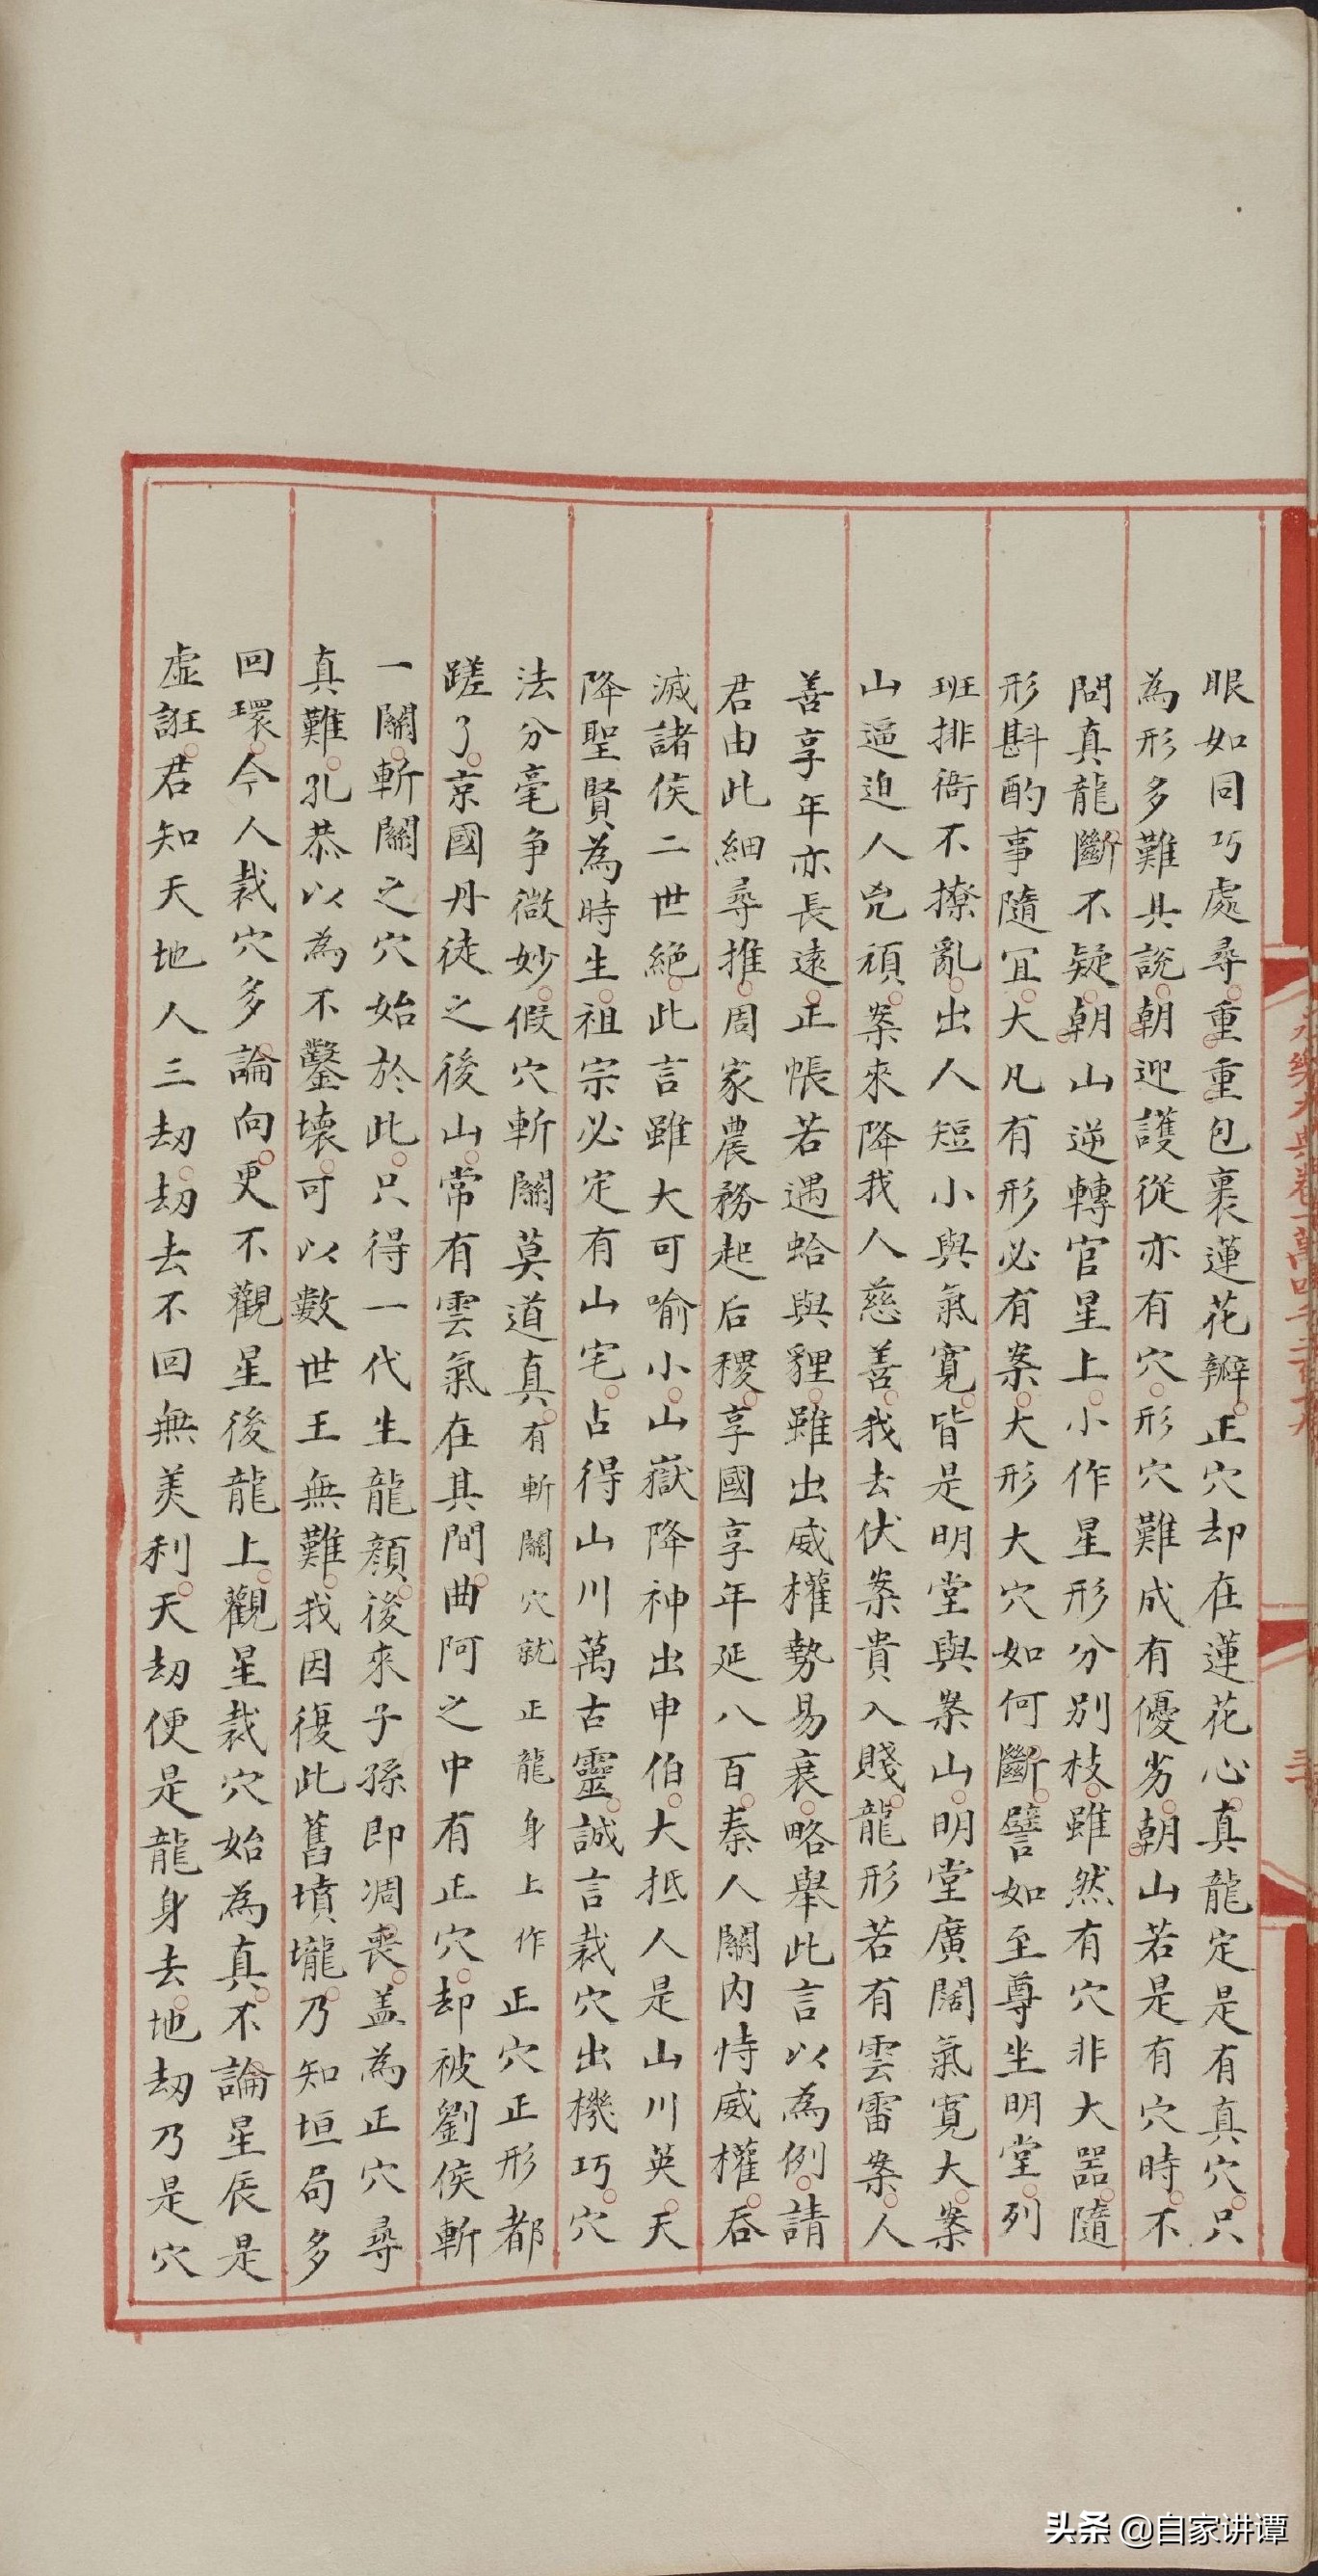 眼如同巧處尋重重包裹蓮花瓣正穴却在蓮花心真龍定是有真穴只
為形多難具說朝迎護從亦有穴形穴難成有優劣朝山若是有穴時不
問真龍斷不疑朝山逆轉官星上小作星形分別枝雖然有穴非大器隨
形斟酌事隨宜大凡有形必有案大形大穴如何斷譬如至尊坐明堂列
班排衙不撩亂出人短小與氣寬皆是明堂與案山明堂廣闊氣寬大案
山逼迫人兇頑案來降我人慈善我去伏案貴入賤龍形若有雲雷案人
善享年亦長遠正帳若遇蛤與貍雖出威權勢易衰略舉此言以為例請
君由此細尋推周家農務起后稷享國享年延八百秦人關内恃威權吞
滅諸侯二世絕此言雖大可喻小山嶽降神出申伯大抵人是山川英天
降聖賢為時生祖宗必定有山宅占得山川萬古靈誠言裁穴出機巧穴
法分毫争微妙假穴斬關莫道真有斬關穴就正龍身上作正穴正形都
蹉了京國丹徒之後山常有雲氣在其間曲阿之中有正穴却被劉侯斬
一關斬關之穴始於此只得一代生龍顏後來子孫即凋喪盖為正穴尋
真難孔恭以為不鑿壞可以數世王無難我因復此舊墳壠乃知垣局多
回環今人裁穴多論向更不觀星後龍上觀星裁穴始為真不論星辰是
虛誑君知天地人三劫劫去不回無美利天劫便是龍身去地劫乃是穴
三
头条 @自家讲谭